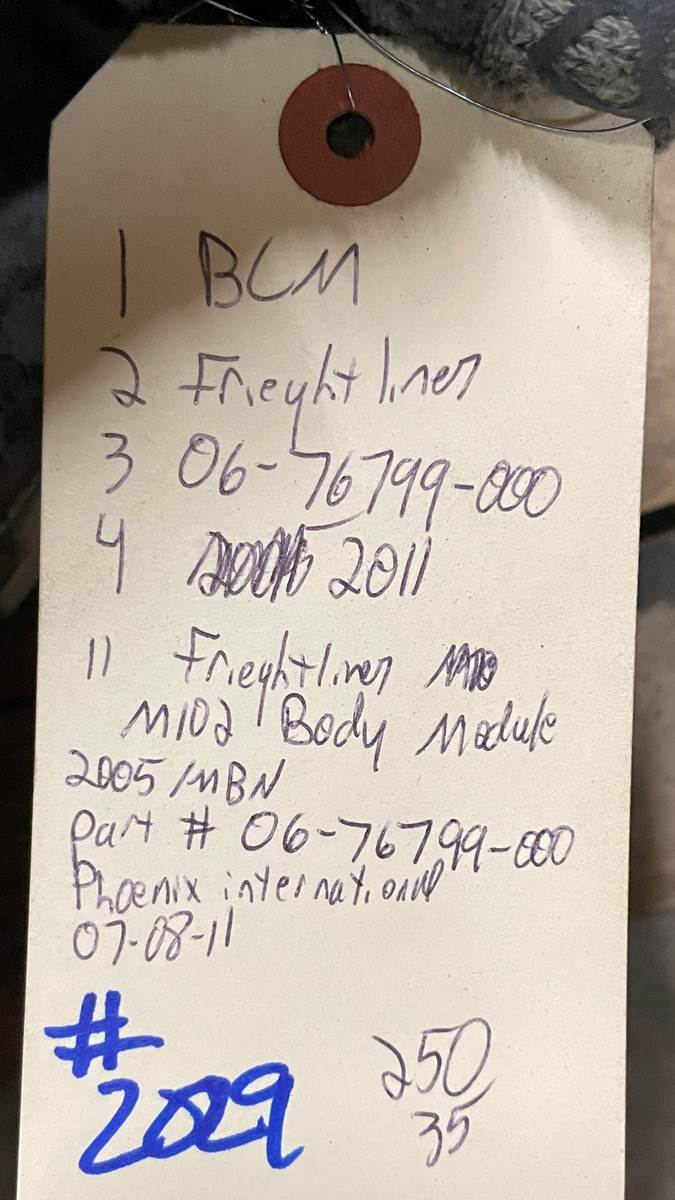 1 BCM
2 Frieghtliner
3 06-76799-000
4 2011
11 Frieghtliner
M102 Body Module
2005/MBN
Part # 06-76799-000
Phoenix international
07-08-11
#
2029
250
35